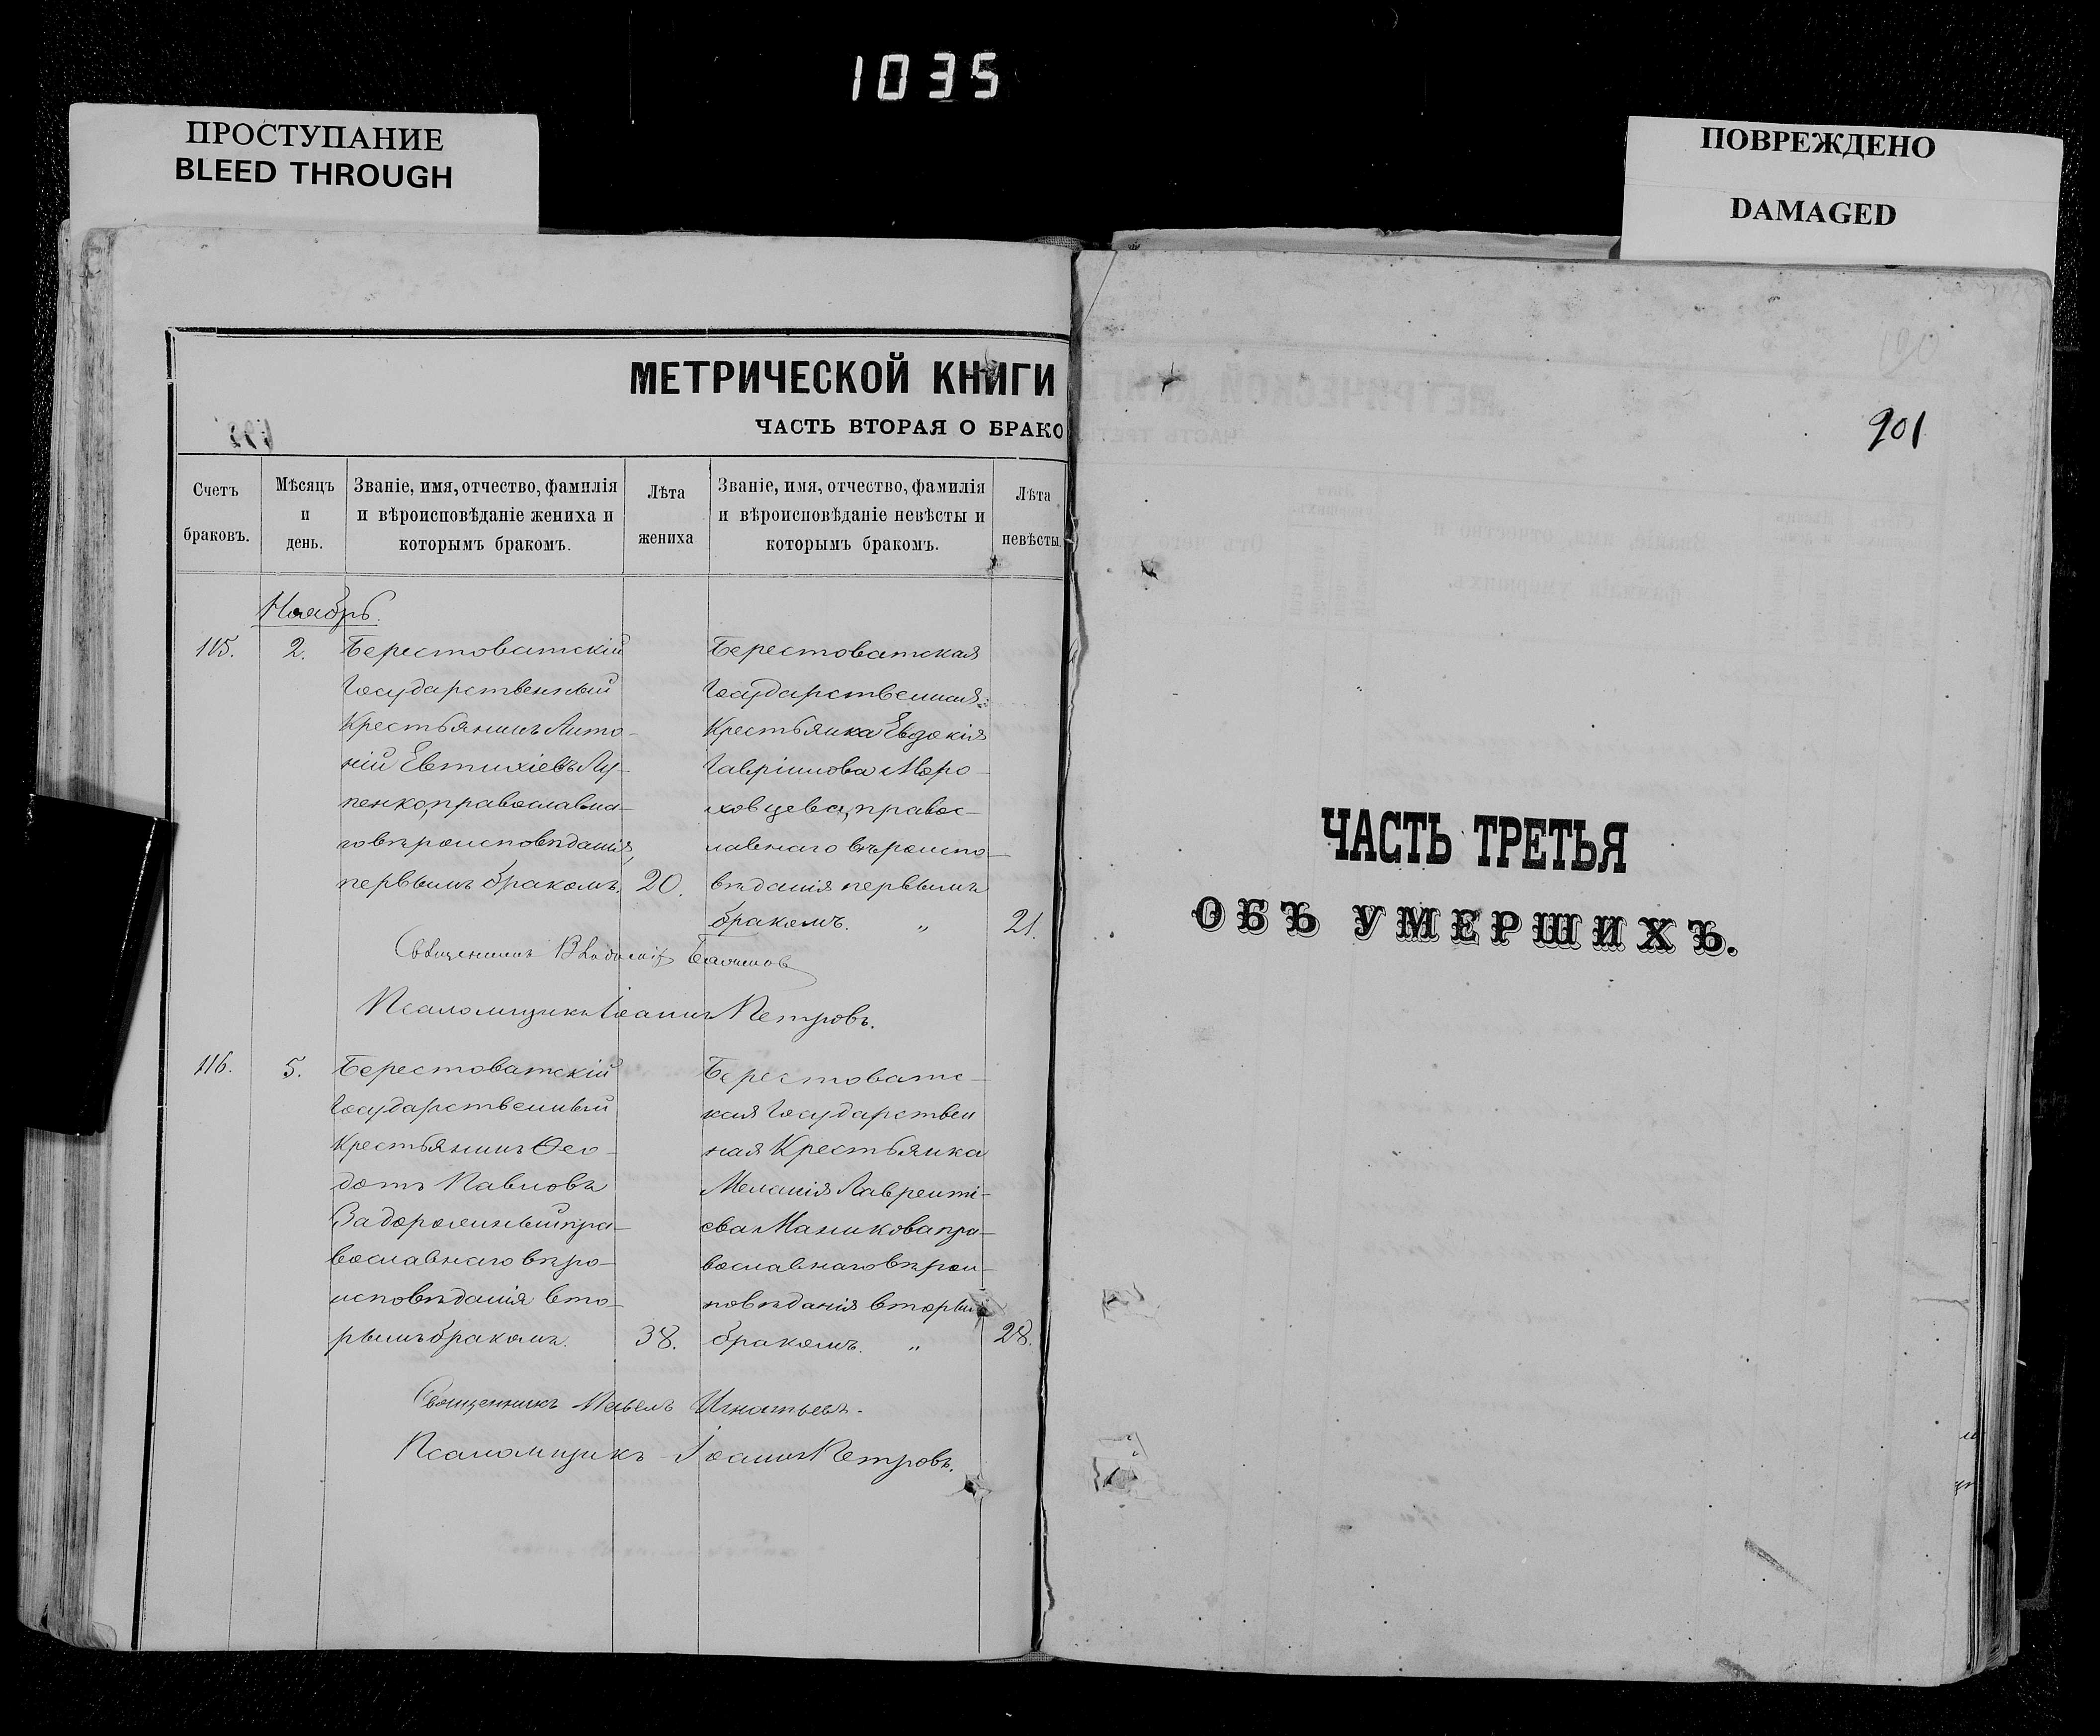 1035
ПРОСТУПАНИЕ
BLEED THROUGH
ПОВРЕЖДЕНО
DAMAGED
МЕТРИЧЕСКОЙ КНИГИ
ЧАСТЬ ВТОРАЯ О БРАКО
Счетъ браковъ.
Мѣсяцъ и день.
Званіе, имя, отчество, фамилія
и вѣроисповѣданіе жениха и
которымъ бракомъ.
Лѣта жениха
Званіе, имя, отчество, фамилія
и вѣроисповѣданіе невѣсты и
которымъ бракомъ.
Лѣта невѣсты.
Ноябрь.
115. 2.
Берестоватскій
Государственный
Крестьянинъ Анто-
ній Евтихіевъ Лу-
пенко, православна-
го вѣроисповѣданія,
первымъ бракомъ. 20.
Берестоватская
Государственная
Крестьянка Евдокія
Гавріилова Моро-
ховцева, правос-
лавнаго вѣроиспо-
вѣданія первымъ
бракомъ. „ 21.
Священникъ Владиміръ
Псаломщикъ Іоаннъ Петровъ.
116. 5.
Берестоватскій
Государственный
Крестьянинъ Ѳео-
дотъ Павловъ
Задорожный пра-
вославнаго вѣро-
исповѣданія вто-
рымъ бракомъ. 38.
Берестоватс-
кая Государствен
ная Крестьянка
Меланія Лавренті-
ева Маникова пра-
вославнаго вѣрои-
повѣданія вторым
бракомъ. „ 28.
Священникъ Павелъ Игнатьевъ.
Псаломщикъ Іоаннъ Петровъ.
190
901
ЧАСТЬ ТРЕТЬЯ
ОБЪ УМЕРШИХЪ.